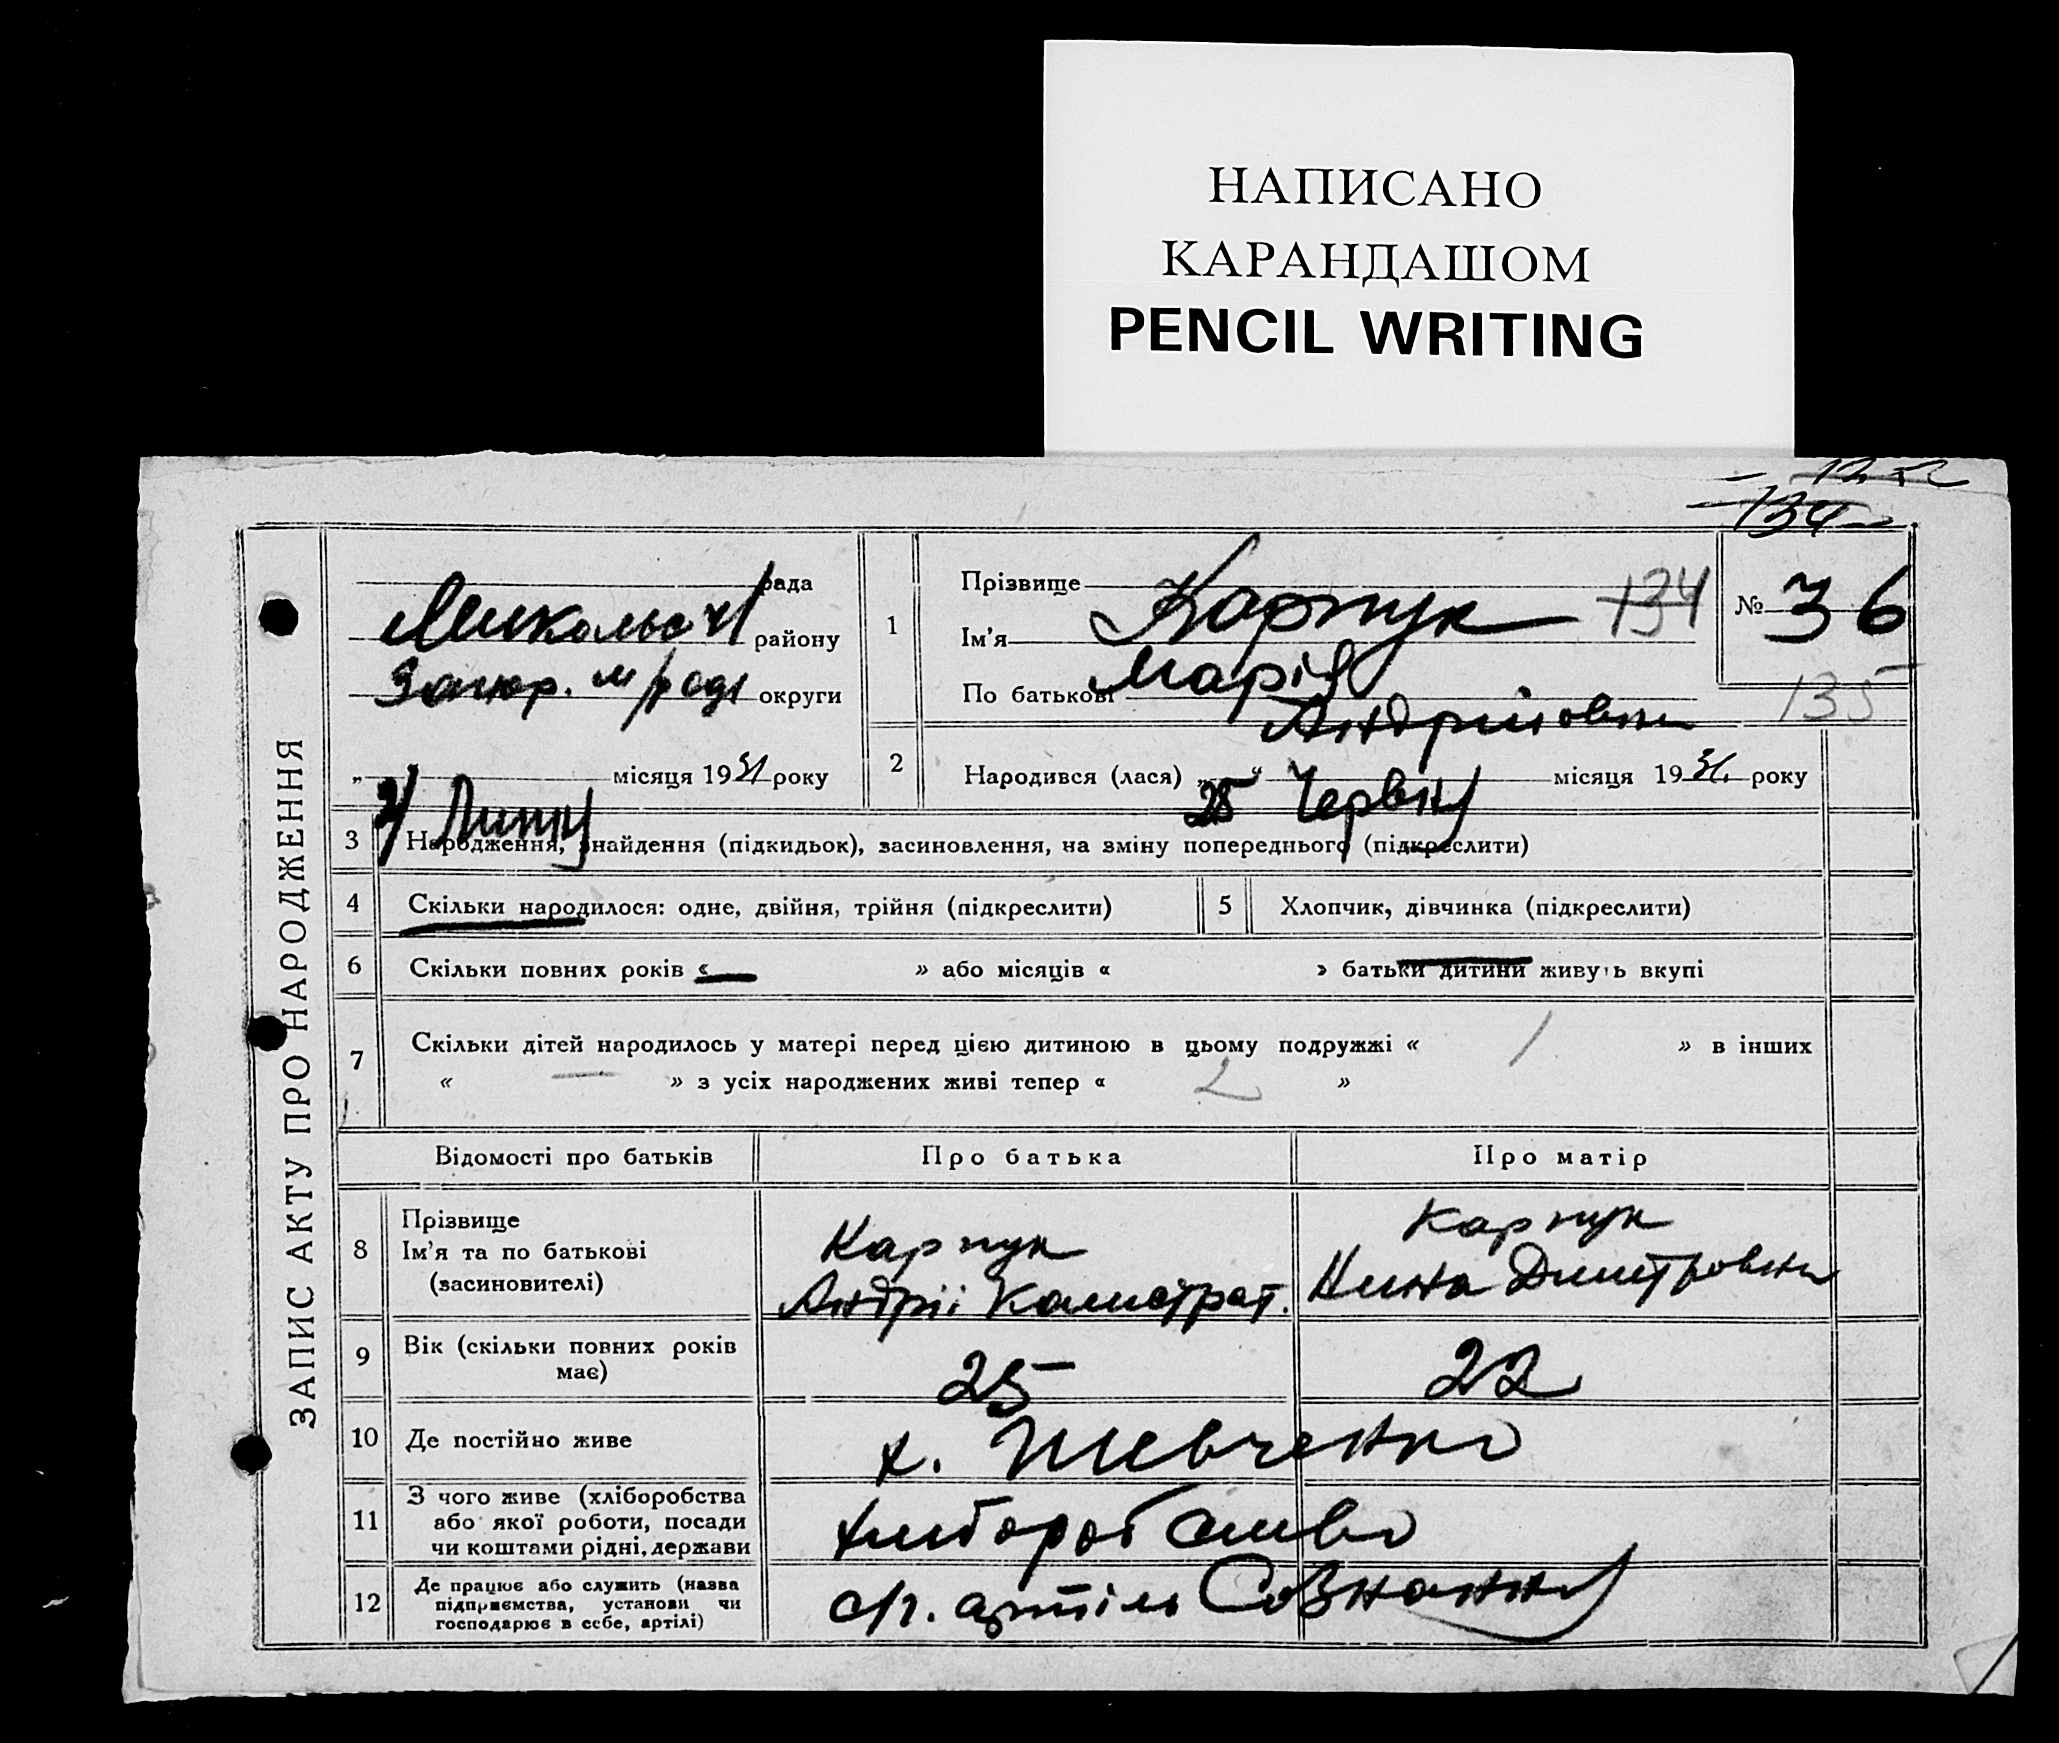 НАПИСАНО
КАРАНДАШОМ
PENCIL WRITING
134
ЗАПИС АКТУ ПРО НАРОДЖЕННЯ
рада
району
округи
" 21 " Липня місяця 1931 року
1
Прізвище Карпук 134
Ім'я Марія
По батькові Андріївна
№ 36
135
2
Народився (лася) " 25 " Червня місяця 1931 року
3 Народження, знайдення (підкидьок), засиновлення, на зміну попереднього (підкреслити)
4 Скільки народилося: одне, двійня, трійня (підкреслити)
5 Хлопчик, дівчинка (підкреслити)
6 Скільки повних років « — » або місяців « » батьки дитини живуть вкупі
7 Скільки дітей народилось у матері перед цією дитиною в цьому подружжі « 1 » в інших
« — » з усіх народжених живі тепер « 2 »
Відомості про батьків
Про батька
Про матір
8
Прізвище
Ім'я та по батькові
(засиновителі)
Карпук
Андрій Калистрат.
Карпук
Нина Дмитровна
9
Вік (скільки повних років
має)
25
22
10 Де постійно живе
х. Шевченко
11
З чого живе (хліборобства
або якої роботи, посади
чи коштами рідні, держави
12
Де працює або служить (назва
підприємства, установи чи
господарює в себе, артілі)
с/г. артіль